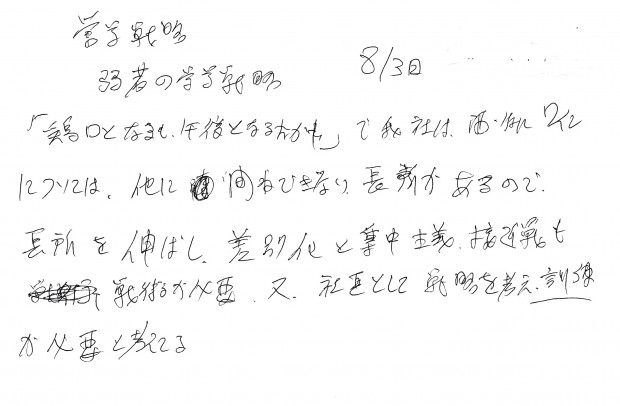 営業戦略
弱者の営業戦略
8/3日
「鶏口となるも、牛後となるなかれ」で我社は、酒、特にワイン
については、他に真似できない長所があるので、
長所を伸ばし、差別化と集中主義、接近戦も
戦術が必要、又、社長として戦略を考え、訓練
が必要と考えてる